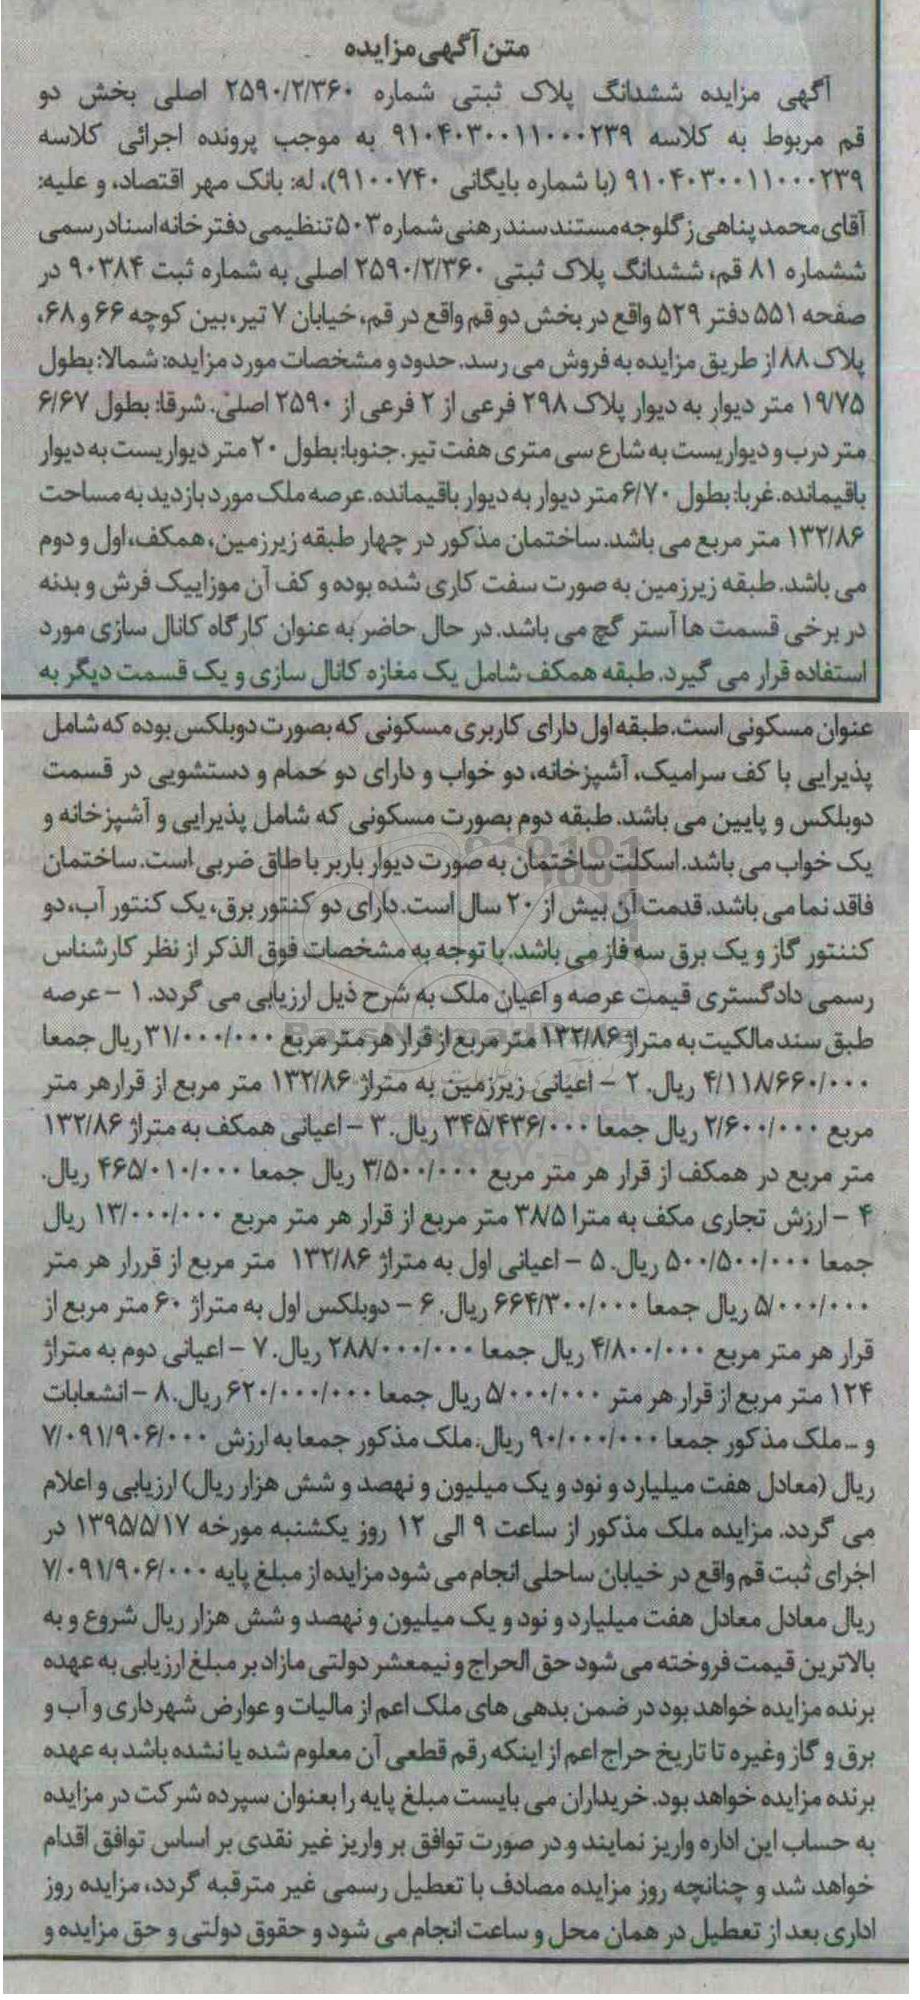 متن آگهی مزایده
آگهی مزایده ششدانگ پلاک ثبتی شماره ۲۵۹۰/۲/۳۶۰ اصلی بخش دو
قم مربوط به کلاسه ۹۱۰۴۰۳۰۰۱۱۰۰۰۲۳۹ به موجب پرونده اجرائی کلاسه
۹۱۰۴۰۳۰۰۱۱۰۰۰۲۳۹ (با شماره بایگانی ۹۱۰۰۷۴۰)، له: بانک مهر اقتصاد، و علیه:
آقای محمد پناهی زگلوجه مستند سند رهنی شماره ۵۰۳ تنظیمی دفترخانه اسناد رسمی
ششماره ۸۱ قم، ششدانگ پلاک ثبتی ۲۵۹۰/۲/۳۶۰ اصلی به شماره ثبت ۹۰۳۸۴ در
صفحه ۵۵۱ دفتر ۵۲۹ واقع در بخش دو قم واقع در قم، خیابان ۷ تیر، بین کوچه ۶۶ و ۶۸،
پلاک ۸۸ از طریق مزایده به فروش می رسد. حدود و مشخصات مورد مزایده: شمالا: بطول
۱۹/۷۵ متر دیوار به دیوار پلاک ۲۹۸ فرعی از ۲ فرعی از ۲۵۹۰ اصلی. شرقا: بطول ۶/۶۷
متر درب و دیواریست به شارع سی متری هفت تیر. جنوبا: بطول ۲۰ متر دیواریست به دیوار
باقیمانده. غربا: بطول ۶/۷۰ متر دیوار به دیوار باقیمانده. عرصه ملک مورد بازدید به مساحت
۱۳۲/۸۶ متر مربع می باشد. ساختمان مذکور در چهار طبقه زیرزمین، همکف، اول و دوم
می باشد. طبقه زیرزمین به صورت سفت کاری شده بوده و کف آن موزاییک فرش و بدنه
در برخی قسمت ها آستر گچ می باشد. در حال حاضر به عنوان کارگاه کانال سازی مورد
استفاده قرار می گیرد. طبقه همکف شامل یک مغازه کانال سازی و یک قسمت دیگر به
عنوان مسکونی است. طبقه اول دارای کاربری مسکونی که بصورت دوبلکس بوده که شامل
پذیرایی با کف سرامیک، آشپزخانه، دو خواب و دارای دو حمام و دستشویی در قسمت
دوبلکس و پایین می باشد. طبقه دوم بصورت مسکونی که شامل پذیرایی و آشپزخانه و
یک خواب می باشد. اسکلت ساختمان به صورت دیوار باربر با طاق ضربی است. ساختمان
فاقد نما می باشد. قدمت آن بیش از ۲۰ سال است. دارای دو کنتور برق، یک کنتور آب، دو
کننتور گاز و یک برق سه فاز می باشد. با توجه به مشخصات فوق الذکر از نظر کارشناس
رسمی دادگستری قیمت عرصه و اعیان ملک به شرح ذیل ارزیابی می گردد. ۱ – عرصه
طبق سند مالکیت به متراژ ۱۳۲/۸۶ متر مربع از قرار هر متر مربع ۳۱/۰۰۰/۰۰۰ ریال جمعا
۴/۱۱۸/۶۶۰/۰۰۰ ریال. ۲ – اعیانی زیرزمین به متراژ ۱۳۲/۸۶ متر مربع از قرارهر متر
مربع ۲/۶۰۰/۰۰۰ ریال جمعا ۳۴۵/۴۳۶/۰۰۰ ریال. ۳ – اعیانی همکف به متراژ ۱۳۲/۸۶
متر مربع در همکف از قرار هر متر مربع ۳/۵۰۰/۰۰۰ ریال جمعا ۴۶۵/۰۱۰/۰۰۰ ریال.
۴ – ارزش تجاری مکف به مترا ۳۸/۵ متر مربع از قرار هر متر مربع ۱۳/۰۰۰/۰۰۰ ریال
جمعا ۵۰۰/۵۰۰/۰۰۰ ریال. ۵ – اعیانی اول به متراژ ۱۳۲/۸۶ متر مربع از قررار هر متر
۵/۰۰۰/۰۰۰ ریال جمعا ۶۶۴/۳۰۰/۰۰۰ ریال. ۶ – دوبلکس اول به متراژ ۶۰ متر مربع از
قرار هر متر مربع ۴/۸۰۰/۰۰۰ ریال جمعا ۲۸۸/۰۰۰/۰۰۰ ریال. ۷ – اعیانی دوم به متراژ
۱۲۴ متر مربع از قرار هر متر ۵/۰۰۰/۰۰۰ ریال جمعا ۶۲۰/۰۰۰/۰۰۰ ریال. ۸ – انشعابات
و – ملک مذکور جمعا ۹۰/۰۰۰/۰۰۰ ریال. ملک مذکور جمعا به ارزش ۷/۰۹۱/۹۰۶/۰۰۰
ریال (معادل هفت میلیارد و نود و یک میلیون و نهصد و شش هزار ریال) ارزیابی و اعلام
می گردد. مزایده ملک مذکور از ساعت ۹ الی ۱۲ روز یکشنبه مورخه ۱۳۹۵/۵/۱۷ در
اجرای ثبت قم واقع در خیابان ساحلی انجام می شود مزایده از مبلغ پایه ۷/۰۹۱/۹۰۶/۰۰۰
ریال معادل معادل هفت میلیارد و نود و یک میلیون و نهصد و شش هزار ریال شروع و به
بالاترین قیمت فروخته می شود حق الحراج و نیمعشر دولتی مازاد بر مبلغ ارزیابی به عهده
برنده مزایده خواهد بود در ضمن بدهی های ملک اعم از مالیات و عوارض شهرداری و آب و
برق و گاز وغیره تا تاریخ حراج اعم از اینکه رقم قطعی آن معلوم شده یا نشده باشد به عهده
برنده مزایده خواهد بود. خریداران می بایست مبلغ پایه را بعنوان سپرده شرکت در مزایده
به حساب این اداره واریز نمایند و در صورت توافق بر واریز غیر نقدی بر اساس توافق اقدام
خواهد شد و چنانچه روز مزایده مصادف با تعطیل رسمی غیر مترقبه گردد، مزایده روز
اداری بعد از تعطیل در همان محل و ساعت انجام می شود و حقوق دولتی و حق مزایده و